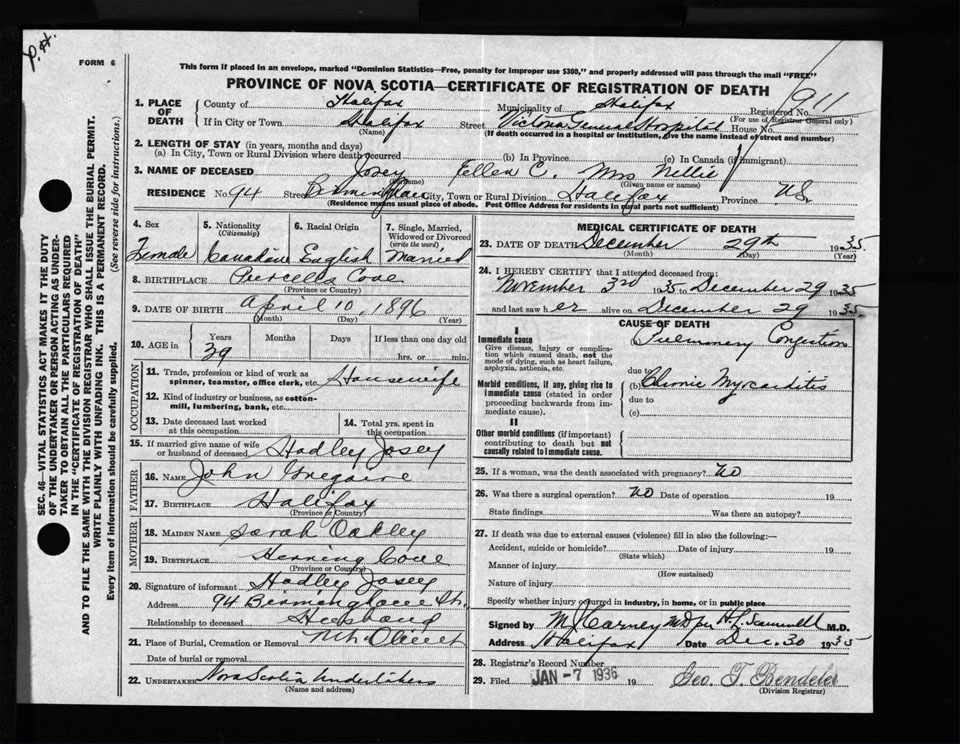 P.H.
FORM 6
This form if placed in an envelope, marked "Dominion Statistics—Free, penalty for improper use $300," and properly addressed will pass through the mail "FREE"
PROVINCE OF NOVA SCOTIA—CERTIFICATE OF REGISTRATION OF DEATH
911
1. PLACE OF DEATH
County of Halifax Municipality of Halifax Registered No.
(For use of Registrar General only)
If in City or Town Halifax Street Victoria General Hospital House No.
(Name) (If death occurred in a hospital or institution, give the name instead of street and number)
2. LENGTH OF STAY (in years, months and days)
(a) In City, Town or Rural Division where death occurred (b) In Province (c) In Canada (if immigrant)
3. NAME OF DECEASED Josey Ellen C. Mrs Nellie
(Given name or names)
RESIDENCE No 94 Street Birmingham City, Town or Rural Division Halifax Province NS.
(Residence means usual place of abode. Post Office Address for residents in rural parts not sufficient)
4. Sex
Female
5. Nationality
(Citizenship)
Canadian
6. Racial Origin
English
7. Single, Married, Widowed or Divorced
(write the word)
Married
8. BIRTHPLACE Purcells Cove
(Province or Country)
9. DATE OF BIRTH April 10, 1896
(Month) (Day) (Year)
10. AGE in Years Months Days If less than one day old
39 hrs. or min.
OCCUPATION
11. Trade, profession or kind of work as spinner, teamster, office clerk, etc. Housewife
12. Kind of industry or business, as cotton-mill, lumbering, bank, etc.
13. Date deceased last worked at this occupation
14. Total yrs. spent in this occupation
15. If married give name of wife or husband of deceased Hadley Josey
FATHER
16. NAME John Gregoire
17. BIRTHPLACE Halifax
(Province or Country)
MOTHER
18. MAIDEN NAME Sarah Oakley
19. BIRTHPLACE Herring Cove
(Province or Country)
20. Signature of informant Hadley Josey
Address 94 Birmingham St.
Relationship to deceased Husband
21. Place of Burial, Cremation or Removal Mt. Olivet
Date of burial or removal
22. UNDERTAKER Nova Scotia Undertakers
(Name and address)
MEDICAL CERTIFICATE OF DEATH
23. DATE OF DEATH December 29th 1935
(Month) (Day) (Year)
24. I HEREBY CERTIFY that I attended deceased from:
November 3rd 1935 to December 29 1935
and last saw her alive on December 29 1935.
CAUSE OF DEATH
I
Immediate cause
Give disease, injury or complication which caused death, not the mode of dying, such as heart failure, asphyxia, asthenia, etc.
Pulmonary Congestion
due to
Morbid conditions, if any, giving rise to immediate cause (stated in order proceeding backwards from immediate cause).
(b) Chronic Myocarditis
due to
(c)
II
Other morbid conditions (if important) contributing to death but not causally related to immediate cause.
25. If a woman, was the death associated with pregnancy? No
26. Was there a surgical operation? No Date of operation 19
State findings Was there an autopsy?
27. If death was due to external causes (violence) fill in also the following:—
Accident, suicide or homicide? Date of injury 19
(State which)
Manner of injury
(How sustained)
Nature of injury
Specify whether injury occurred in industry, in home, or in public place
Signed by M J Carney MD per H. L. Scammell M.D.
Address Halifax Date Dec. 30 1935
28. Registrar's Record Number
29. Filed JAN -7 1936 19 Geo. T. Bendeler
(Division Registrar)
SEC. 46—VITAL STATISTICS ACT MAKES IT THE DUTY
OF THE UNDERTAKER OR PERSON ACTING AS UNDER-
TAKER TO OBTAIN ALL THE PARTICULARS REQUIRED
IN THE "CERTIFICATE OF REGISTRATION OF DEATH"
AND TO FILE THE SAME WITH THE DIVISION REGISTRAR WHO SHALL ISSUE THE BURIAL PERMIT.
WRITE PLAINLY WITH UNFADING INK. THIS IS A PERMANENT RECORD.
Every item of information should be carefully supplied. (See reverse side for instructions.)